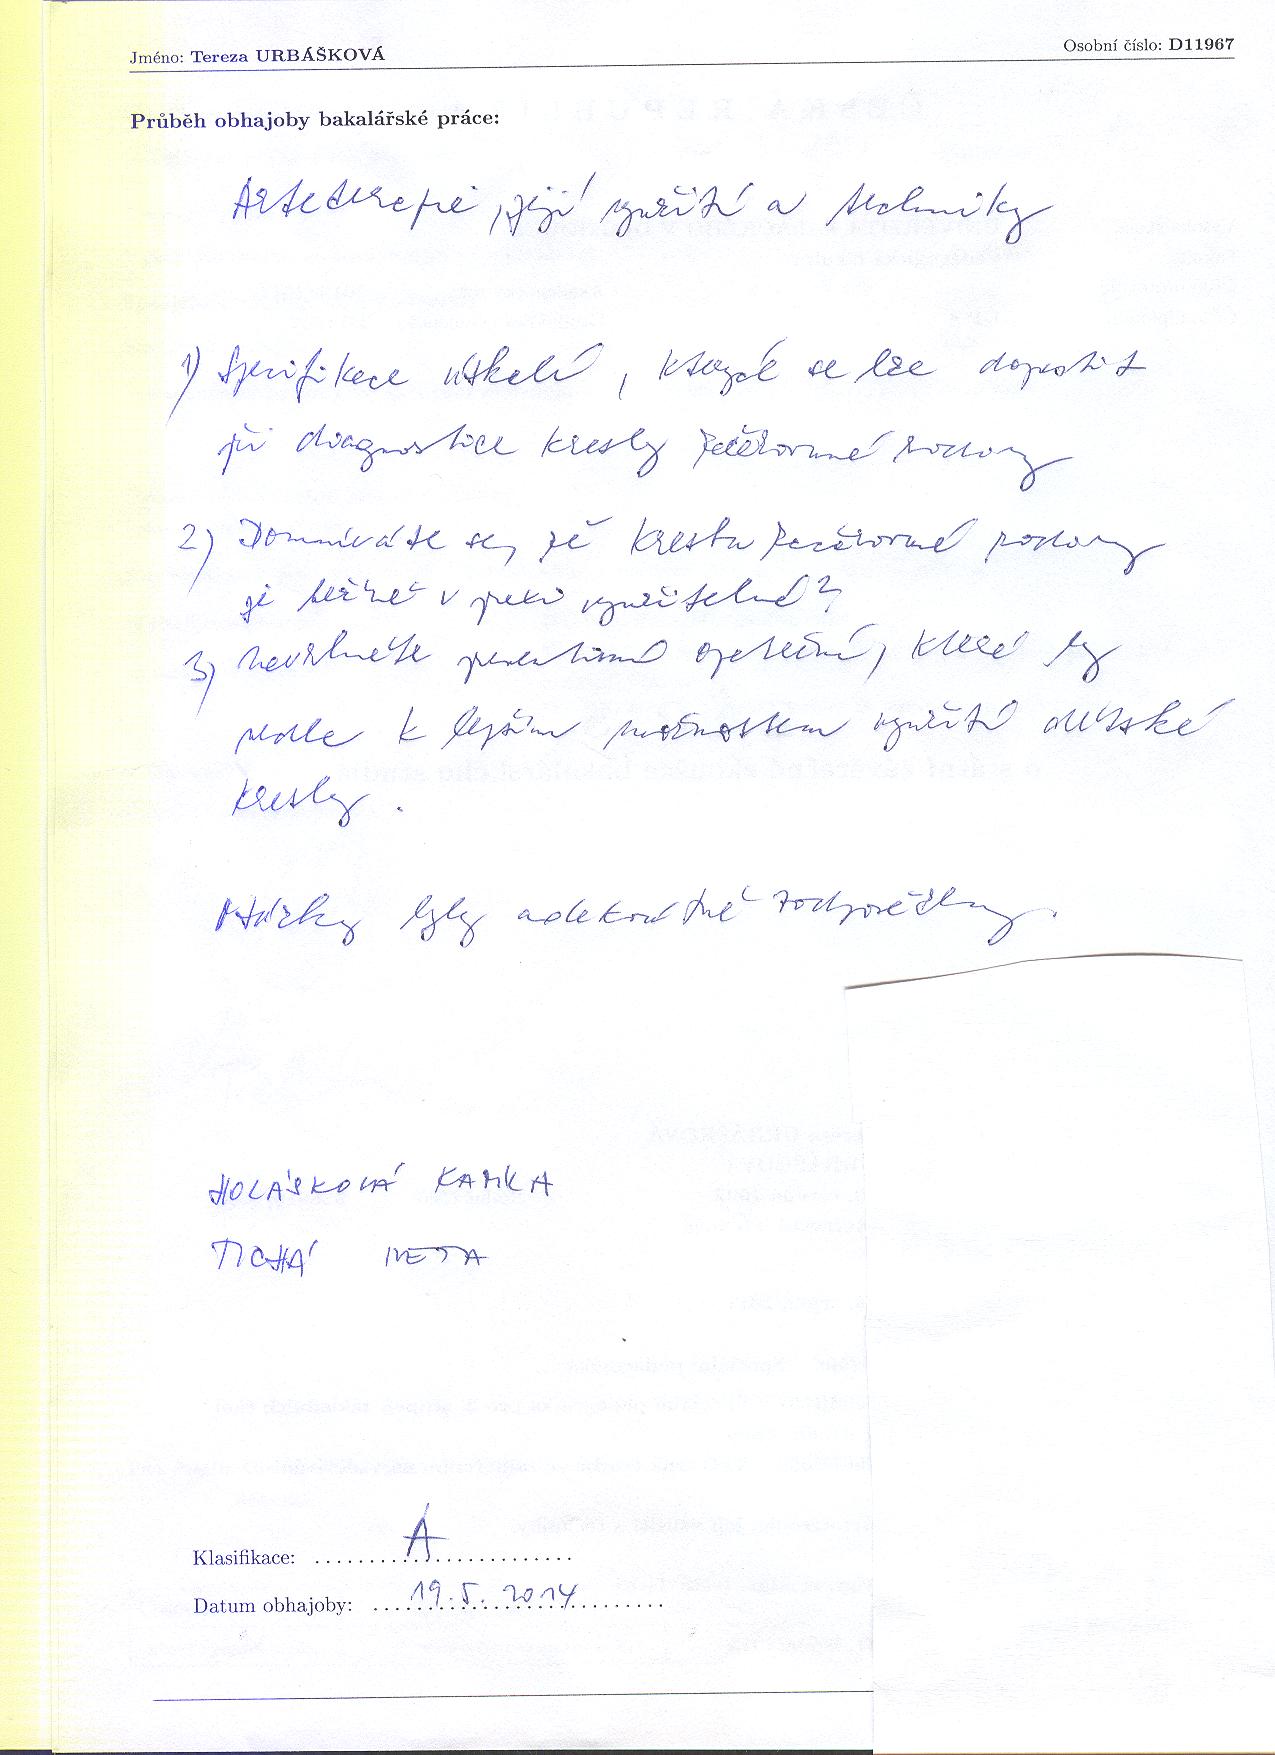 Jméno: Tereza URBÁŠKOVÁ
Osobní číslo: D11967
Průběh obhajoby bakalářské práce:
Arteterapie, její využití a techniky
1) Specifikace úskalí, kterých se lze dopustit
při diagnostice kresby začarované rodiny
2) Domníváte se, že kresba začarované rodiny
je běžně v praxi využitelná?
3) Navrhněte preventivní opatření, které by
vedle k lepším možnostem využití dětské
kresby.
Otázky byly adekvátně zodpovězeny.
HOLÁSKOVÁ KAMILA
TICHÁ IVETA
Klasifikace: A
Datum obhajoby: 19.5.2014